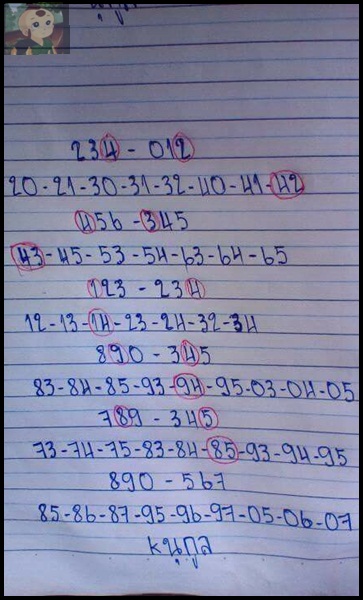 234 - 012
20-21-30-31-32-40-41-42
456 - 345
43-45-53-54-63-64-65
123 - 234
12-13-14-23-24-32-34
890 - 345
83-84-85-93-94-95-03-04-05
789 - 345
73-74-75-83-84-85-93-94-95
890 - 567
85-86-87-95-96-97-05-06-07
Kนุกูล